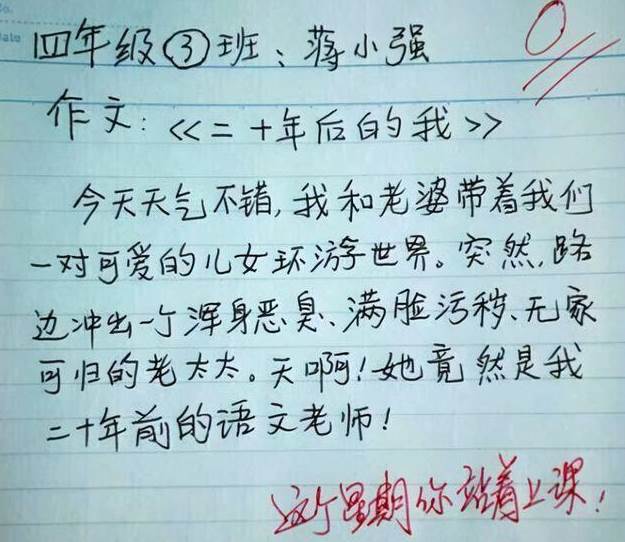 四年级③班：蒋小强
作文:《二十年后的我》
今天天气不错,我和老婆带着我们
一对可爱的儿女环游世界。突然,路
边冲出一个浑身恶臭、满脸污秽、无家
可归的老太太。天啊!她竟然是我
二十年前的语文老师!
0
这个星期你站着上课!